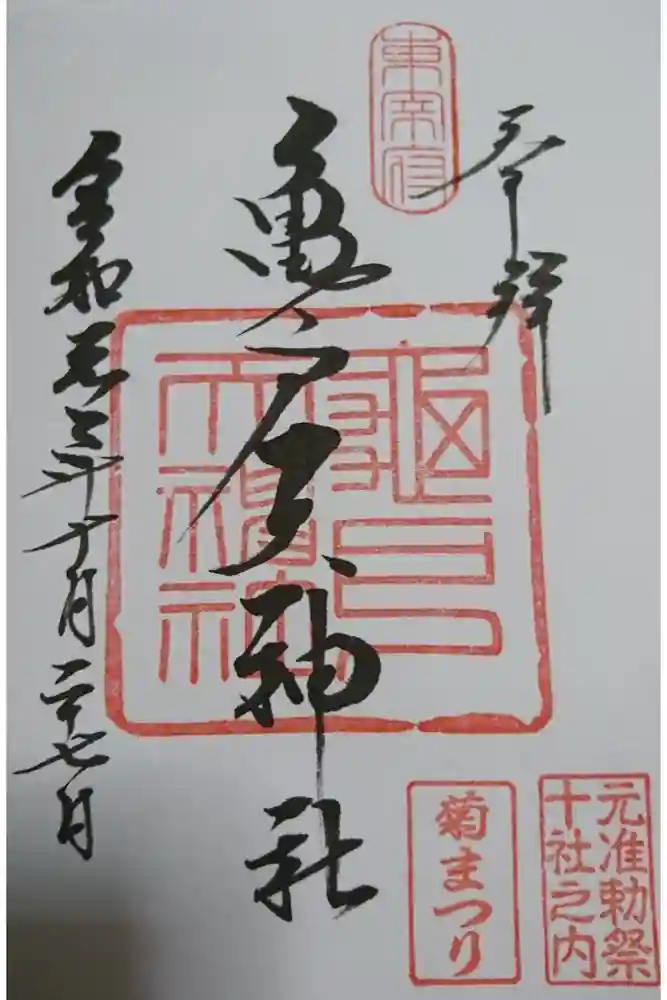 奉拝
東宰府
亀戸天神社
令和元年十月二十七日
元准勅祭
十社之内
菊まつり